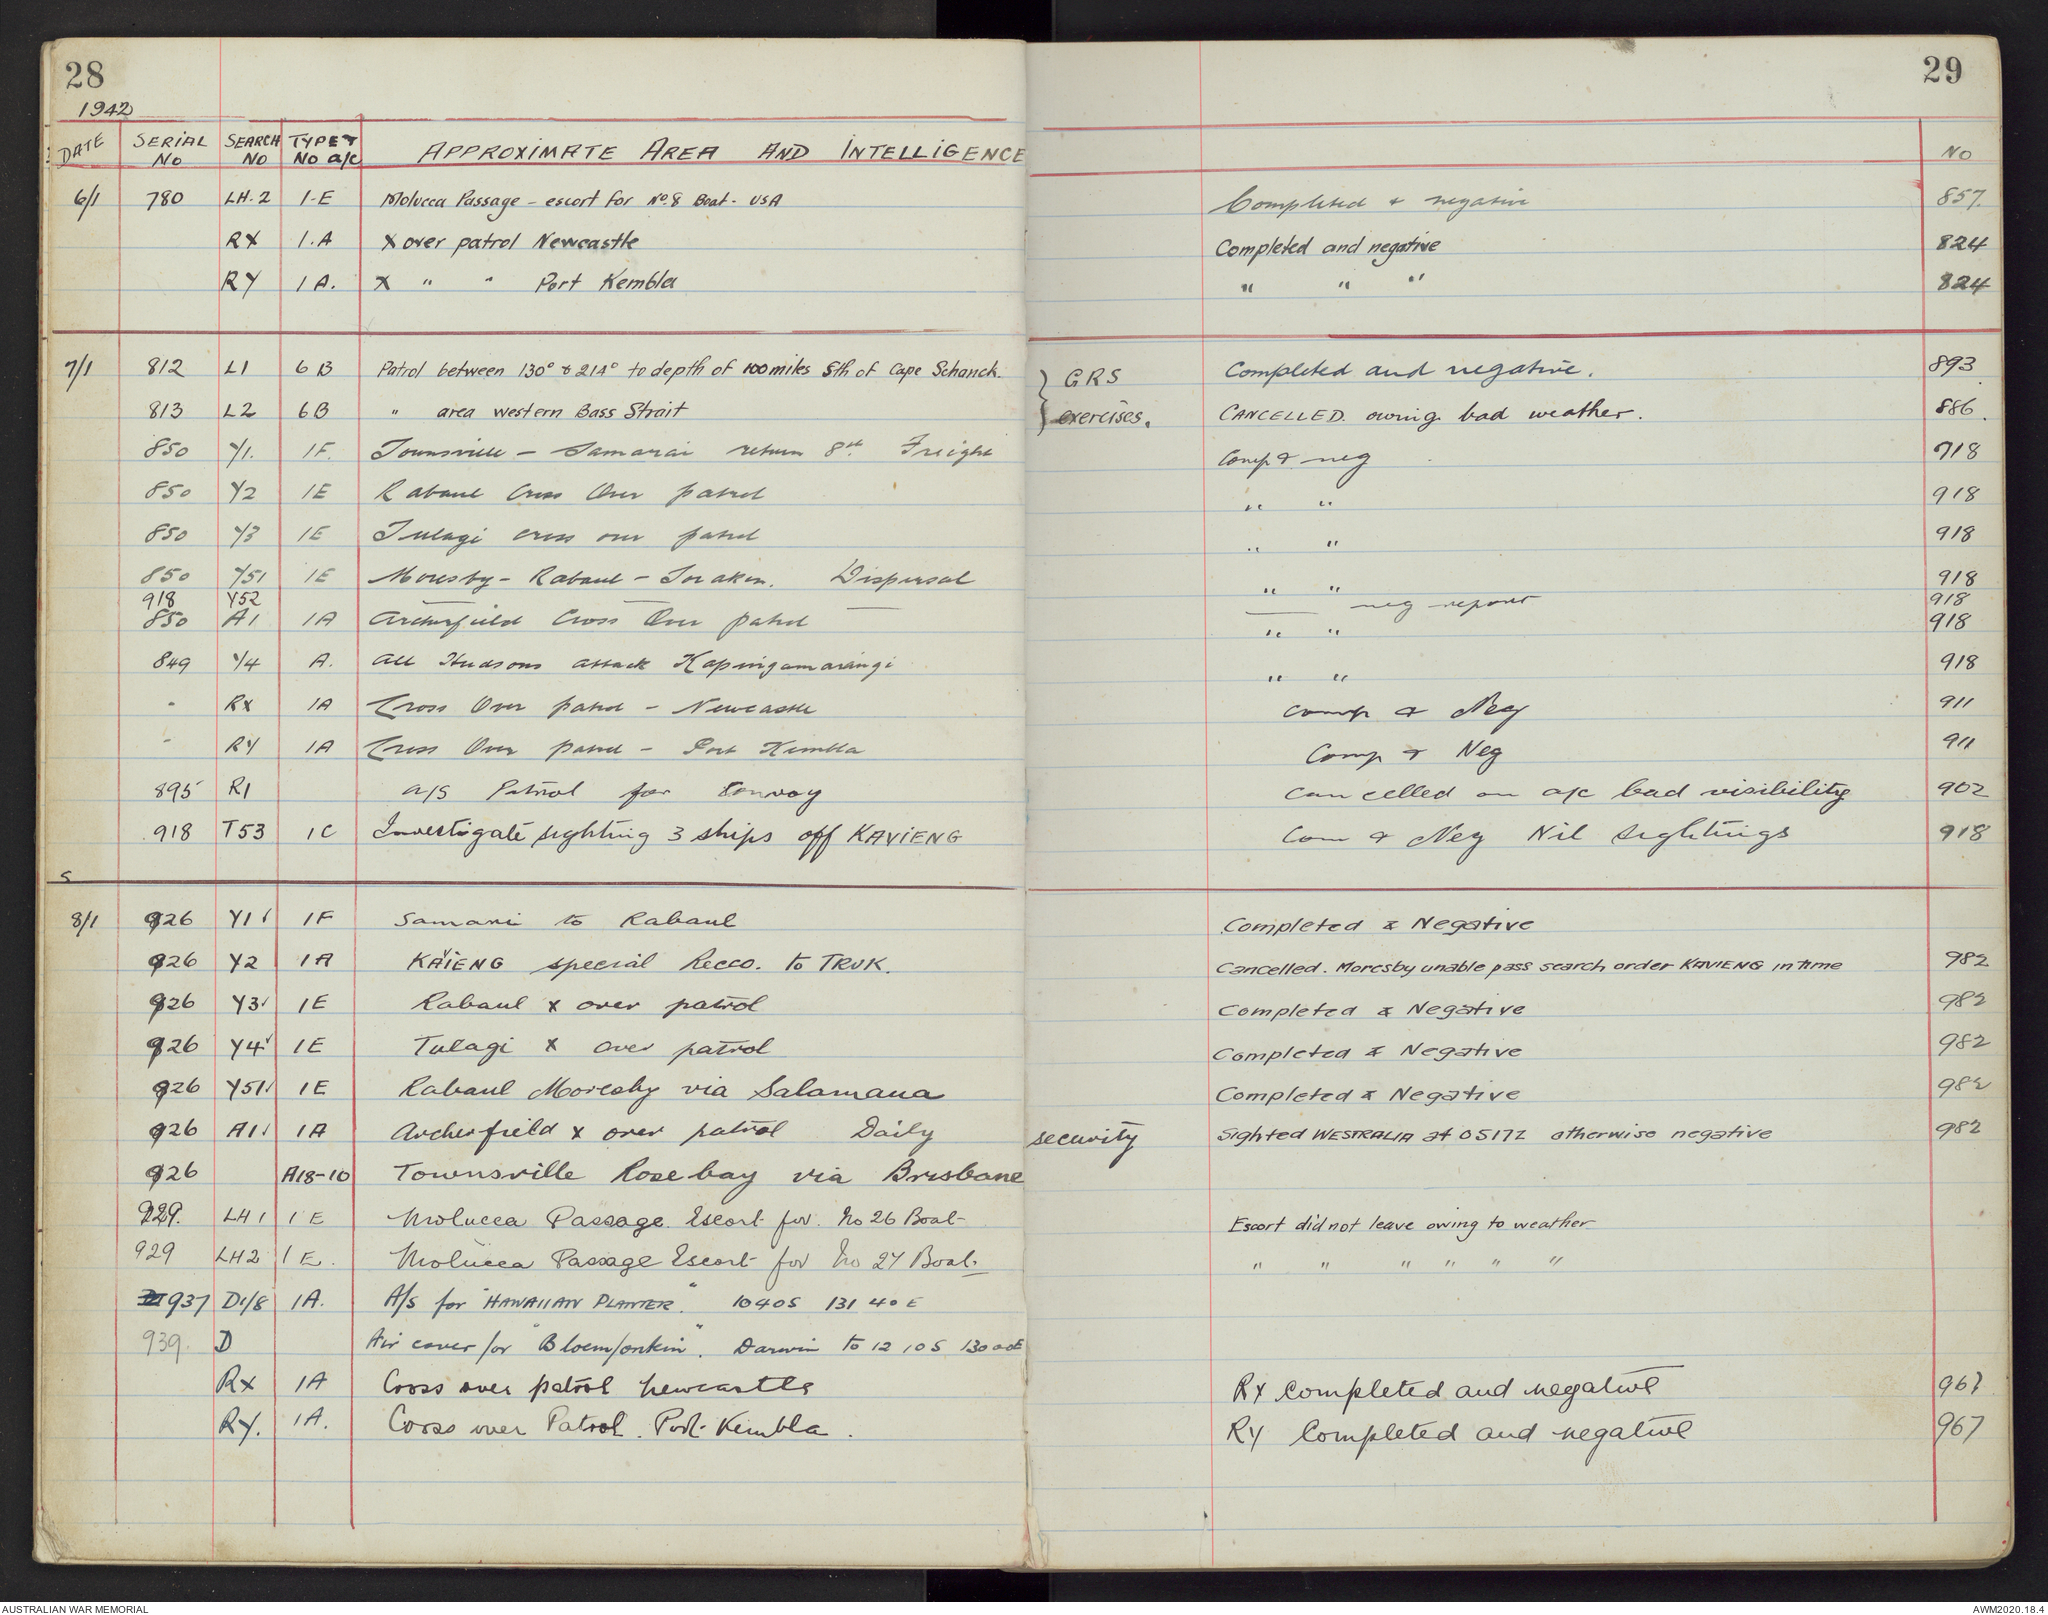 28
29
1942
DATE SERIAL No SEARCH No TYPE & No a/c APPROXIMATE AREA AND INTELLIGENCE No
6/1 780 LH.2 1-E Molucca Passage - escort for No.8 Boat - USA Completed & negative 857
RX 1.A X over patrol Newcastle Completed and negative 824
RY 1A. X " " Port Kembla " " " 824
7/1 812 L1 6B Patrol between 130° & 214° to depth of 100 miles Sth of Cape Schanck. } GRS Completed and negative. 893
813 L2 6B " area western Bass Strait } exercises. CANCELLED. owing bad weather. 886
850 Y1. 1F. Townsville - Samarai return 8th Freight Comp & neg 918
850 Y2 1E Rabaul Cross Over patrol " " 918
850 Y3 1E Tulagi cross over patrol " " 918
850 Y51 1E Moresby - Rabaul - Soraken. Dispersal " " 918
918 Y52 — — — — neg report 918
850 A1 1A Archerfield Cross Over patrol " " 918
849 Y4 A. All Hudsons attack Kapingamarangi " " 918
- RX 1A Cross Over patrol - Newcastle comp & Neg 911
- RY 1A Cross Over patrol - Port Kembla Comp & Neg 911
895 R1 A/S Patrol for Convoy cancelled on a/c bad visibility 902
918 T53 1C Investigate sighting 3 ships off KAVIENG Com & Neg Nil Sightings 918
S
8/1 926 Y1 1F Samarai to Rabaul Completed & Negative
926 Y2 1A KAVIENG special Recco. to TRUK. Cancelled. Moresby unable pass search order KAVIENG in time 982
926 Y3 1E Rabaul x over patrol Completed & Negative 982
926 Y4 1E Tulagi x over patrol Completed & Negative 982
926 Y51 1E Rabaul Moresby via Salamaua Completed & Negative 982
926 A1 1A Archerfield x over patrol Daily security Sighted WESTRALIA at 0517Z otherwise negative 982
926 A18-10 Townsville Rosebay via Brisbane
929. LH1 1E Molucca Passage. Escort for. No 26 Boat- Escort did not leave owing to weather
929 LH2 1E. Molucca Passage Escort for No 27 Boat. " " " " " "
937 D1/8 1A. A/S for "HAWAIIAN PLANTER." 1040S 131 40E
939. D Air cover for "Bloemfontein". Darwin to 12 10S 130 00E
RX 1A Cross over patrol Newcastle RX Completed and negative 967
RY. 1A. Cross over Patrol. Port Kembla. RY Completed and negative 967
AUSTRALIAN WAR MEMORIAL
AWM2020.18.4